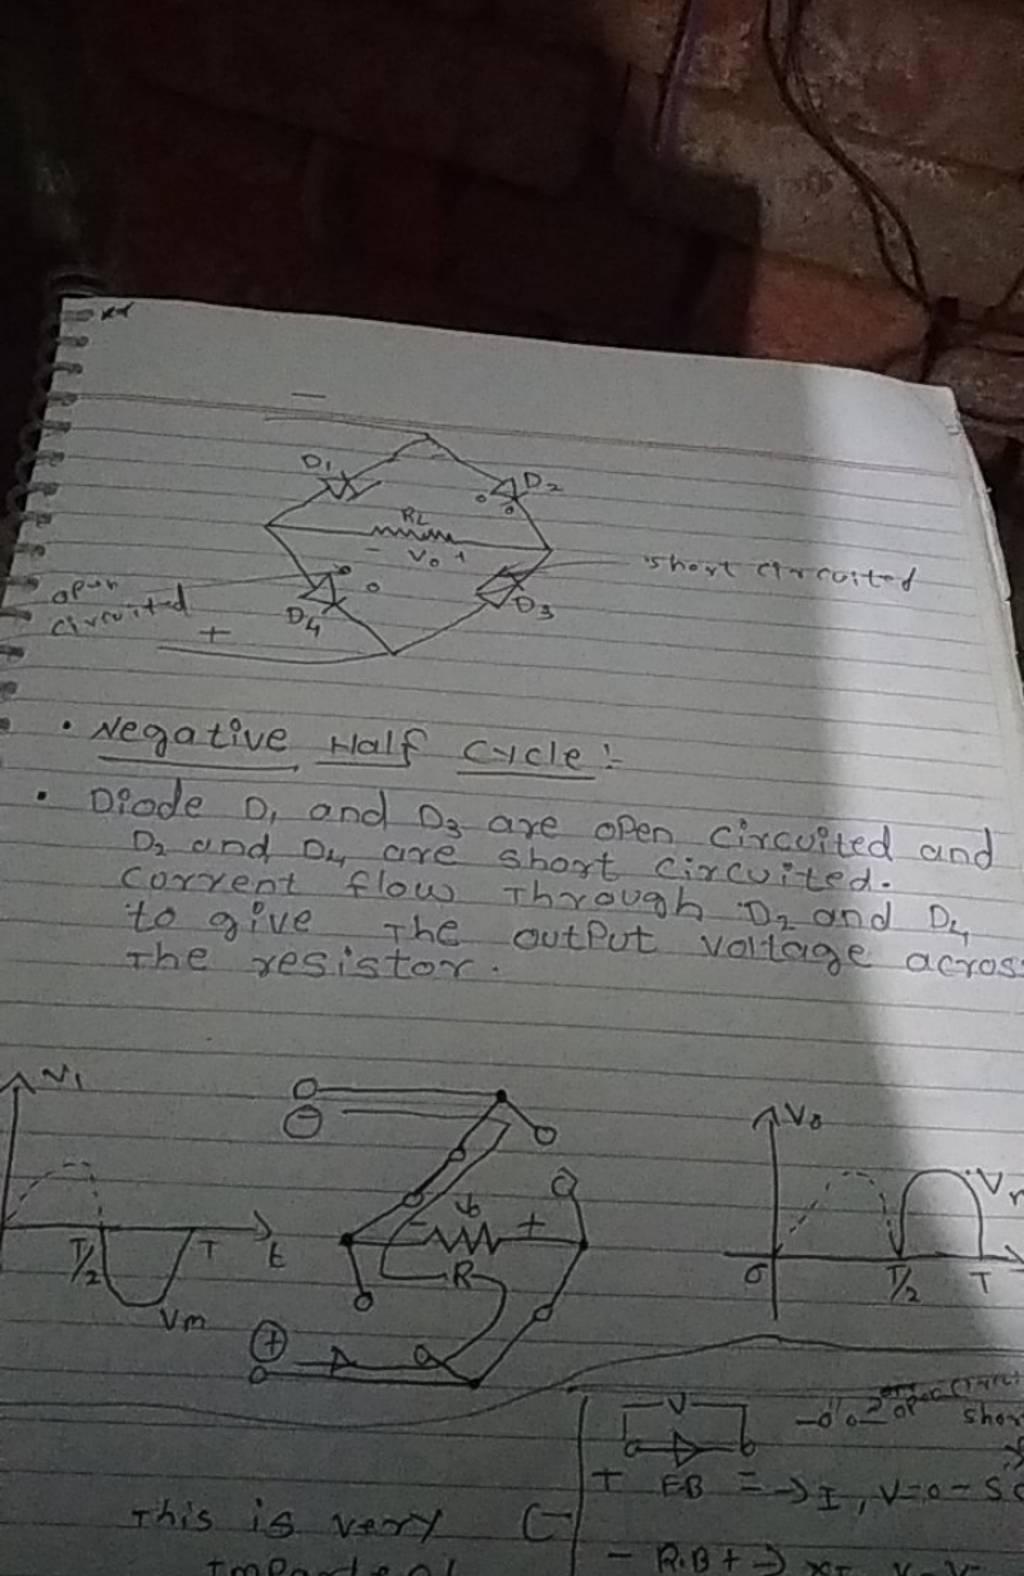 D1
D2
RL
- Vo +
short circuited
open
circuited
D4
D3
+
• Negative Half Cycle :-
• Diode D1 and D3 are open circuited and
D2 and D4 are short circuited.
corrent flow Through D2 and D4
to give The output voltage acros
The resistor.
Vi
T/2
T
t
Vm
- Vo +
R
+
Vo
0
T/2
T
V
shor
+ F.B => I, V=0 - S.C
This is very
- R.B +